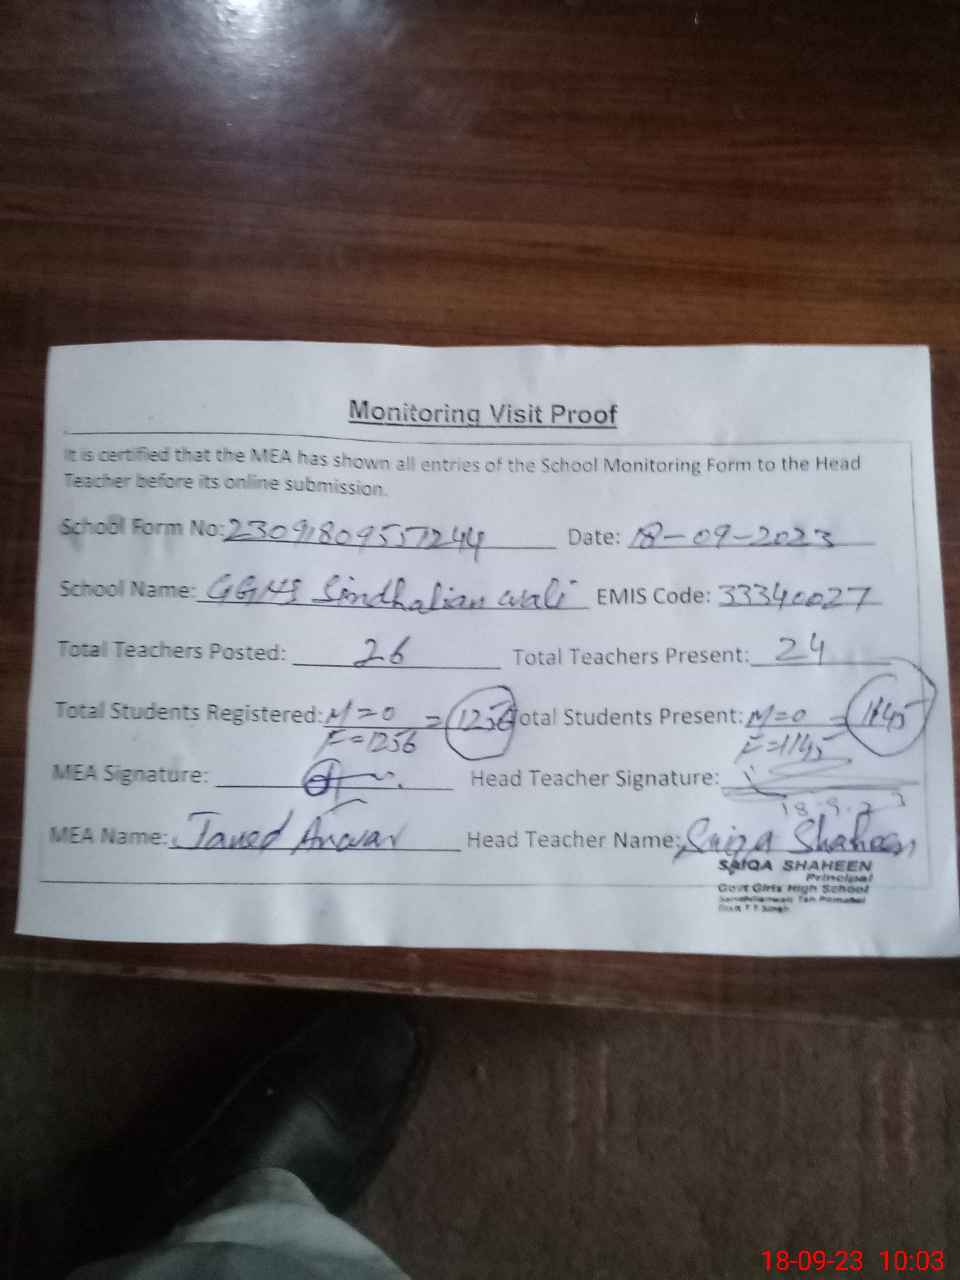 Monitoring Visit Proof
It is certified that the MEA has shown all entries of the School Monitoring Form to the Head
Teacher before its online submission.
School Form No: 23091809557244 Date: 18-09-2023
School Name: GGHS Sindhalian wali EMIS Code: 33340027
Total Teachers Posted: 26 Total Teachers Present: 24
Total Students Registered: M=0 = 1256 Total Students Present: M=0 = 1145
F=1256 F=1145
MEA Signature: Head Teacher Signature:
18.9.23
MEA Name: Javed Anwar Head Teacher Name: Saiqa Shaheen
SAIQA SHAHEEN
Principal
Govt Girls High School
18-09-23 10:03